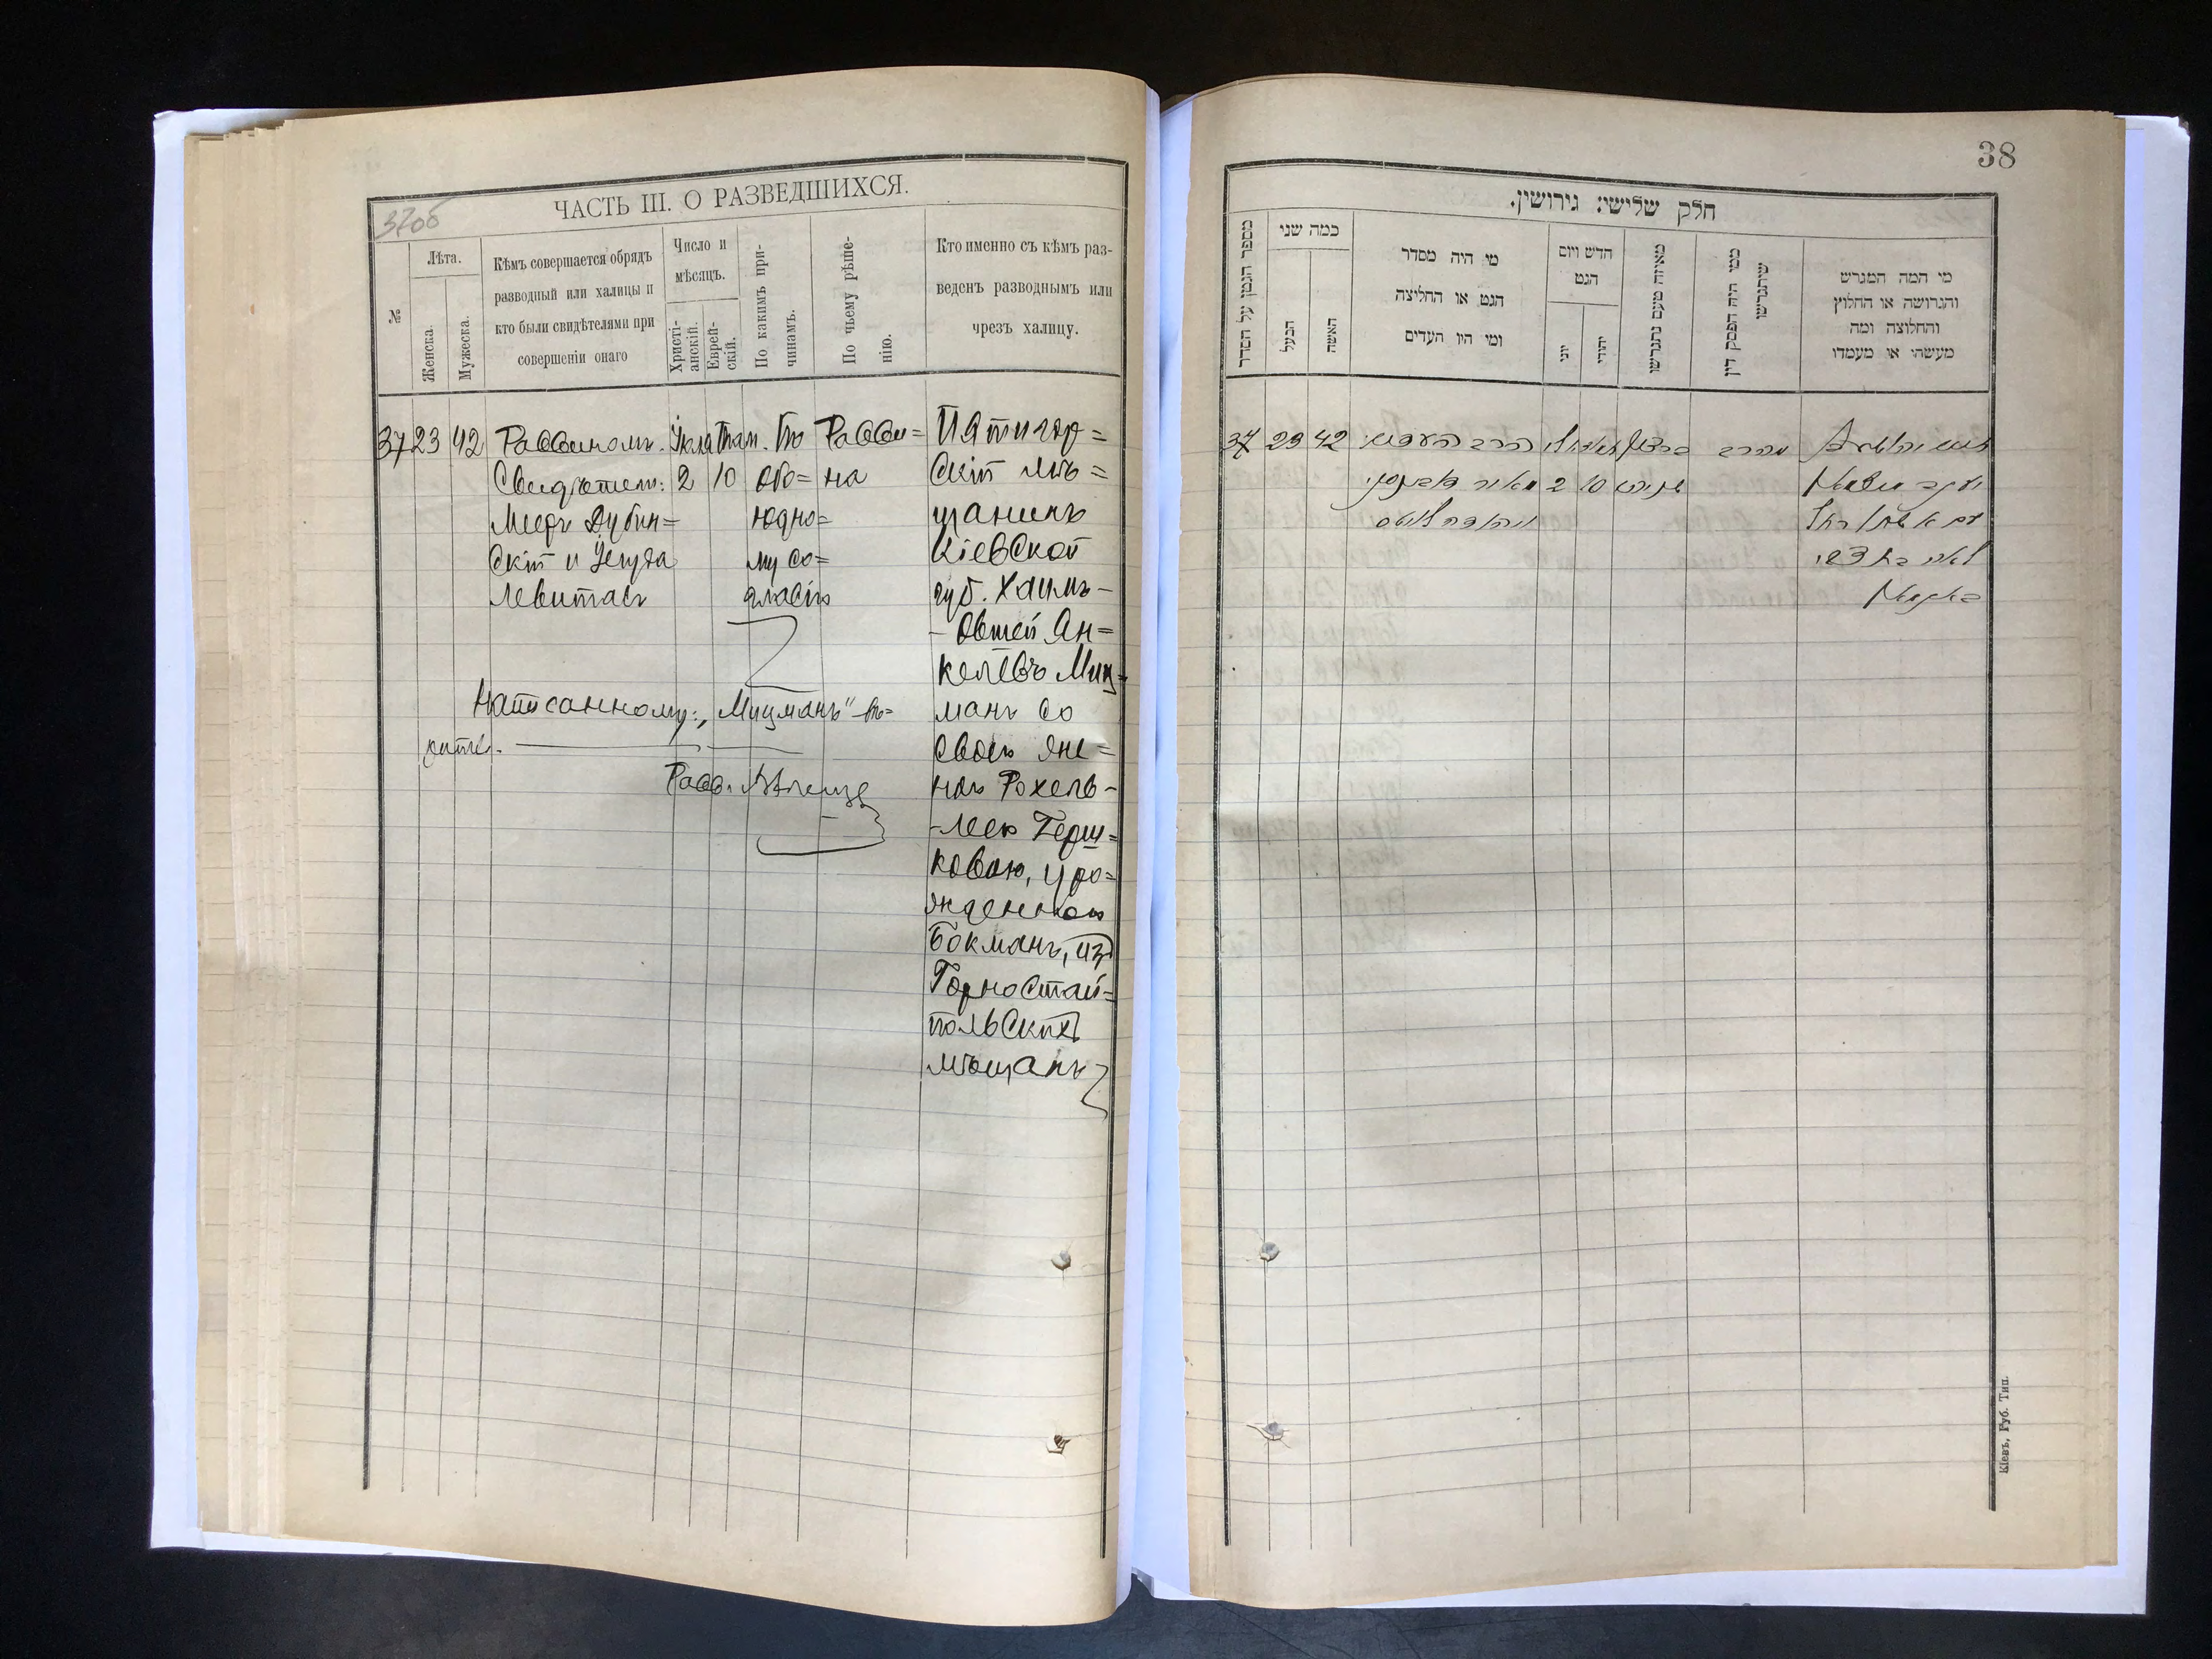 37об
ЧАСТЬ III. О РАЗВЕДШИХСЯ.
№
Лѣта.
Женска.
Мужеска.
Кѣмъ совершается обрядъ
разводный или халицы и
кто были свидѣтелями при
совершеніи онаго
Число и
мѣсяцъ.
Христі-
анскій.
Еврей-
скій.
По какимъ при-
чинамъ.
По чьему рѣше-
нію.
Кто именно съ кѣмъ раз-
веденъ разводнымъ или
чрезъ халицу.
37 23 42 Раввиномъ. Іюля Там. По Равви=
Свидѣтели: 2 10 обо= на
Мееръ Дубин= юдно=
скій и Іегуда му со=
Левитасъ гласію
Пятигор=
скій мѣ=
щанинъ
Кіевской
губ. Хаимъ-
-Овшей Ян=
келевъ Миц=
манъ со
своею же=
ною Рохель-
-Леею Герш=
ковою, уро=
жденною
Бокманъ, из
Горностай=
польскихъ
мѣщанъ
Написанному: „Мицманъ" вѣ=
рить.
Равв.
38
חלק שלישי: גירושין.
מספר הגטין על הסדר
כמה שני
הבעל
האשה
מי היה מסדר
הגט או החליצה
ומי היו העדים
חדש ויום
הגט
יוני
יהודי
מאיזה טעם נתגרשו
ממי היה הפסק דין
שיתגרשו
מי המה המגרש
והגרושה או החלוץ
והחלוצה ומה
מעשהו או מעמדו
37 23 42
2 10
Кіевъ, Губ. Тип.